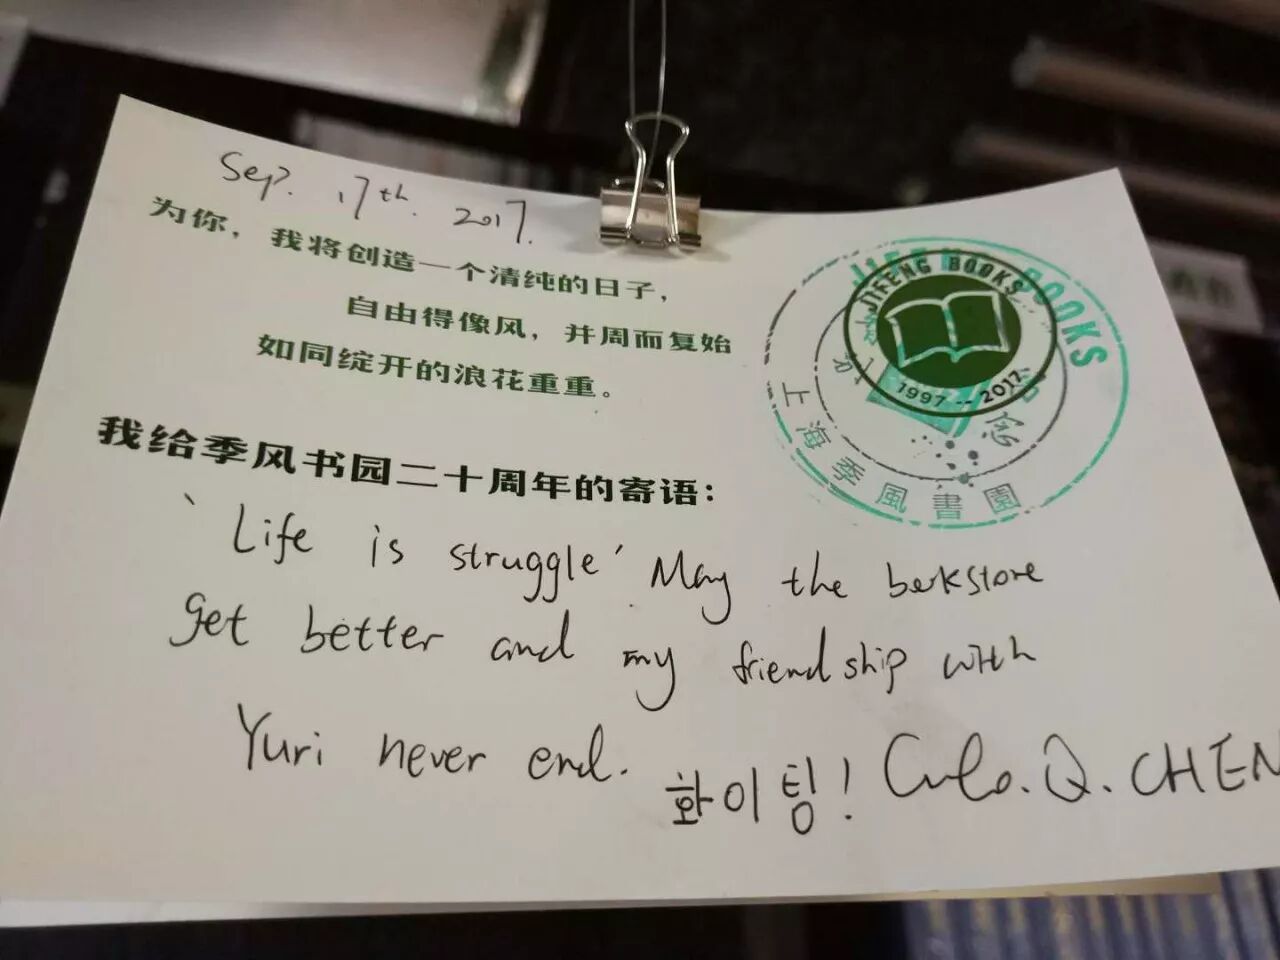 Sep. 17th. 2017.
为你，我将创造一个清纯的日子，
自由得像风，并周而复始
如同绽开的浪花重重。
我给季风书园二十周年的寄语：
'Life is struggle' May the bookstore
get better and my friendship with
Yuri never end. 화이팅! Q. CHEN
JIFENG BOOKS
1997 -- 2017
BOOKS
上海季風書園